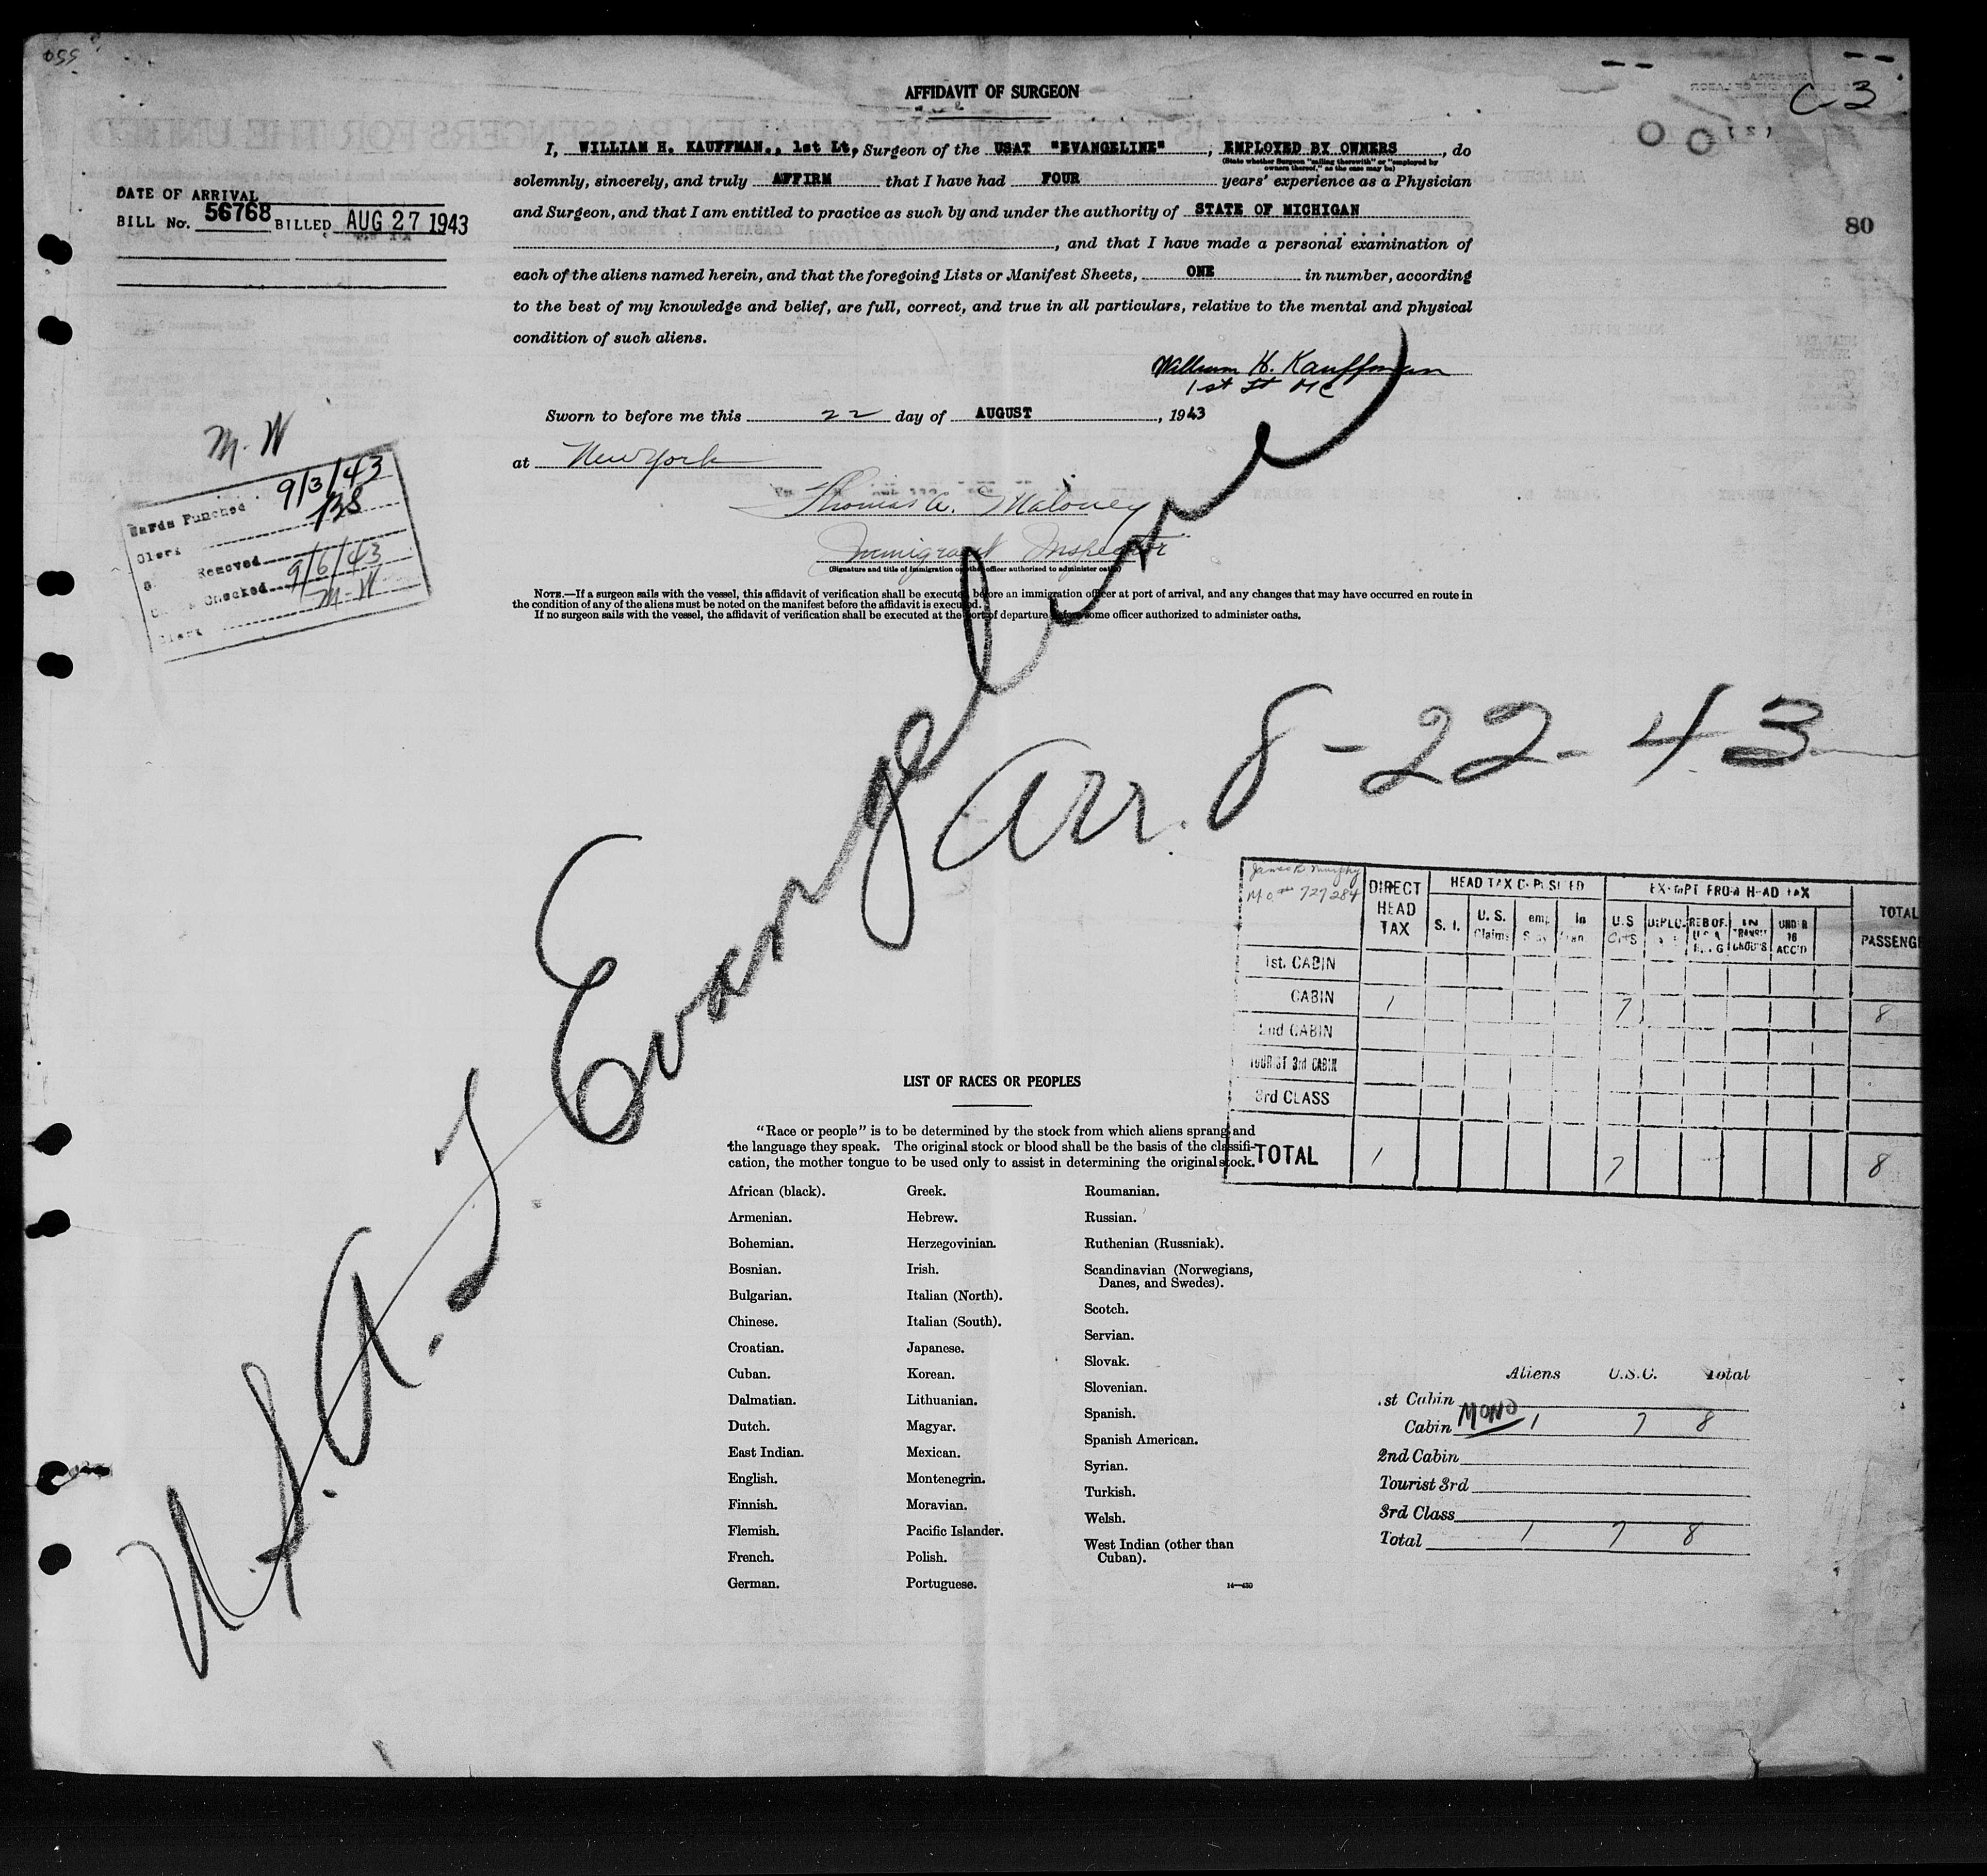 AFFIDAVIT OF SURGEON
C-3
I, WILLIAM H. KAUFFMAN., 1st Lt, Surgeon of the USAT "EVANGELINE", EMPLOYED BY OWNERS, do
(State whether Surgeon "sailing therewith" or "employed by owners thereof," as the case may be)
solemnly, sincerely, and truly AFFIRM that I have had FOUR years' experience as a Physician
and Surgeon, and that I am entitled to practice as such by and under the authority of STATE OF MICHIGAN
, and that I have made a personal examination of
each of the aliens named herein, and that the foregoing Lists or Manifest Sheets, ONE in number, according
to the best of my knowledge and belief, are full, correct, and true in all particulars, relative to the mental and physical
condition of such aliens.
DATE OF ARRIVAL
BILL No. 56768 BILLED AUG 27 1943
80
William H. Kauffman
1st Lt MC
Sworn to before me this 22 day of AUGUST, 1943
at New York
Thomas A. Maloney
Immigrant Inspector
(Signature and title of immigration or other officer authorized to administer oaths)
NOTE.—If a surgeon sails with the vessel, this affidavit of verification shall be executed before an immigration officer at port of arrival, and any changes that may have occurred en route in
the condition of any of the aliens must be noted on the manifest before the affidavit is executed.
If no surgeon sails with the vessel, the affidavit of verification shall be executed at the port of departure before some officer authorized to administer oaths.
M. W
Cards Punched 9/3/43
Clerk 128
Removed
Checked 9/6/43
Clerk M-W
U.S.A.T. Evangeline
Arr. 8-22-43
James B Murphy
727284
DIRECT HEAD TAX
HEAD TAX DEPOSITED
EXEMPT FROM HEAD TAX
TOTAL PASSENG
S. I.
U. S. Claims
U.S CITS
DIPLO.
REB OF.
IN TRANSIT GROUPS
UNDER 16 ACC'D
1st. CABIN
CABIN 1 7 8
2nd CABIN
TOURIST 3rd CABIN
3rd CLASS
TOTAL 1 7 8
LIST OF RACES OR PEOPLES
"Race or people" is to be determined by the stock from which aliens sprang and
the language they speak. The original stock or blood shall be the basis of the classifi-
cation, the mother tongue to be used only to assist in determining the original stock.
African (black).
Armenian.
Bohemian.
Bosnian.
Bulgarian.
Chinese.
Croatian.
Cuban.
Dalmatian.
Dutch.
East Indian.
English.
Finnish.
Flemish.
French.
German.
Greek.
Hebrew.
Herzegovinian.
Irish.
Italian (North).
Italian (South).
Japanese.
Korean.
Lithuanian.
Magyar.
Mexican.
Montenegrin.
Moravian.
Pacific Islander.
Polish.
Portuguese.
Roumanian.
Russian.
Ruthenian (Russniak).
Scandinavian (Norwegians,
Danes, and Swedes).
Scotch.
Servian.
Slovak.
Slovenian.
Spanish.
Spanish American.
Syrian.
Turkish.
Welsh.
West Indian (other than
Cuban).
14—430
Aliens U.S.C. Total
1st Cabin
Cabin MONO 1 7 8
2nd Cabin
Tourist 3rd
3rd Class
Total 1 7 8